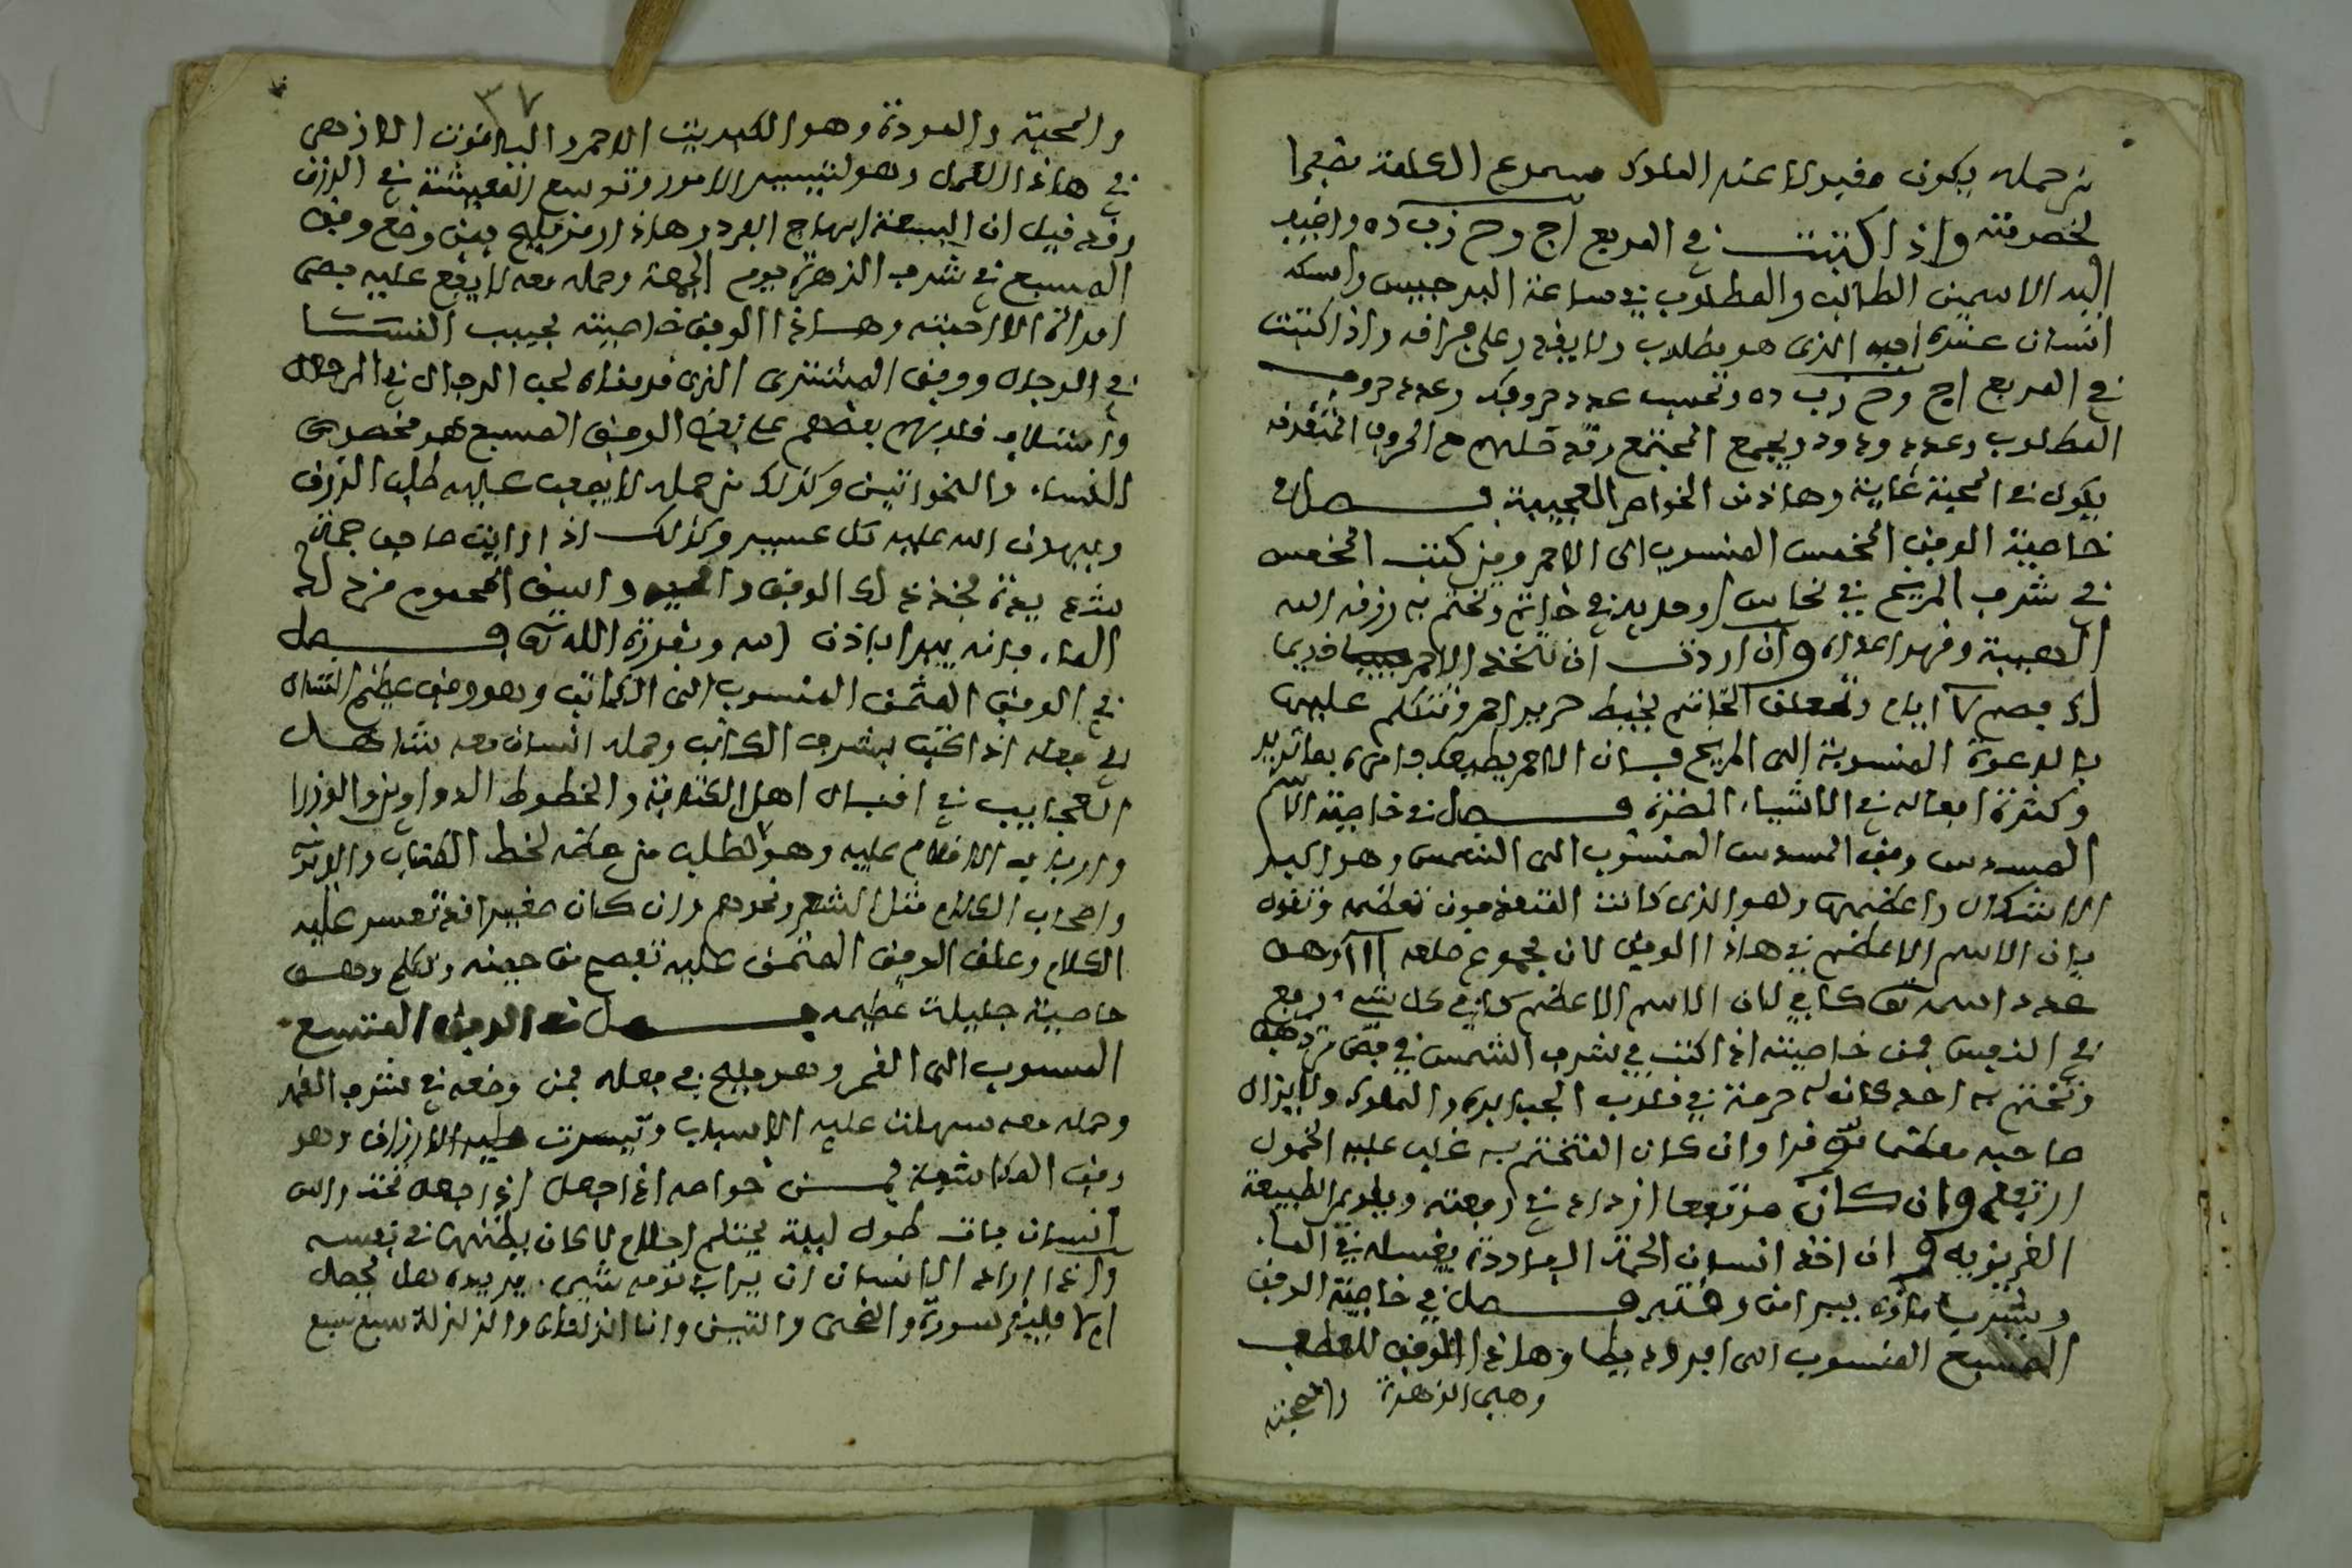 من حمله يكون مقبولا عند الملوك مسموع الكلمة مقهرا
لخصومته واذا كتبت في المربع اج وح زب ده واضيف
اليه الاسمين الطالب والمطلوب في ساعة البرجيس وامسكه
انسان عنده احبه الذي هو مطلوب ولا يقدر على فراقه واذا كتبت
في المربع اج وح زب ده وتحسب عدد حروفك وعدد حروف
المطلوب وعدد ودود ويجمع المجتمع وقد مع الحروف المتقدمة
يكون في المحبة غاية وهاذ من الخواص العجيبة فصل في
خاصية الوفق المخمس المنسوب الى الاحمر ومن كتب المخمس
في شرف المريخ في نحاس او حديد في خاتم وتختم به رزقه الله
الهيبة وقهر اعداه وان اردت ان تتخذ الاحمر خديما
لك فصم ايام وتعلق الخاتم بخيط حرير احمر وتتكلم عليه
بالدعوة المنسوبة الى المريخ فان الاحمر يطيعك وامره بما تريد
وكثرة افعاله في الاشياء المضرة فصل في خاصية الاسم
المسدس وفق المسدس المنسوب الى الشمس وهو اكبر
الاشكال واعظمها وهو الذي كانت المتقدمون تعظمه وتقول
بان الاسم الاعظم في هاذا الوفق لان مجموع ضلعه ااا وهو
عدد اسمه تعالى كافي لان الاسم الاعظم كافي كل شيء رفيع
في النفيس فمن خاصيته اذا كتب في شرف الشمس في فص من ذهب
وتختم به احد كانت له حرمة في قلوب الجبابرة والملوك ولا يزال
صاحبه معظما موقرا وان كان المتختم به غلب عليه الخمول
ارتفع وان كان مرتفعا ازداد في رفعته ويلويم الطبيعة
الغريزيه وان اخذ انسان الحمة الباردة يغسله في الماء
ويشرب ماؤه يبرا من وقته فصل في خاصية الوفق
المسبع المنسوب الى افروديطا وهاذا الوفق للعطف
وهي الزهرة والمحبة
٣٧
والمحبة والمودة وهو الكبريت الاحمر والياقوت الازهى
في هاذا العمل وهو لتيسير الامور وتوسع المعيشة في الرزق
وقد قيل ان السبعة ابهاج الفرد وهاذا رمز مليح فمن وضع وفق
المسبع في شرف الزهرة يوم الجمعة وحمله معه لا يقع عليه بصر
امراة الا احبته وهاذا الوفق خاصيته لحبيب النسا
في الرجال ووفق المشتري الذي قدمناه لحب الرجال في الرجال
وائتلاف قلوبهم بعضهم على بعض الوفق المسبع هو مخصوص
النساء والخواتين وكذلك من حمله لا يصعب عليه طلب الرزق
ويهون الله عليه كل عسير وكذلك اذا رايت صاحب حمة
الماء فانه يبرا باذن الله وبقدرة الله تعالى فصل
في الوفق المثمن المنسوب الى الكاتب وهو وفق عظيم الشان
في فعله اذا كتب بشرف الكاتب وحمله انسان معه شاهد
العجايب في اقبال اهل الكتابة والخطوط الدواوين والوزرا
وارباب الاقلام عليه وهو لطلب من حكمه لخط الكتاب والادب
واصحاب الكلام مثل الشعر ونحوهم وان كان صغيرا قد تعسر عليه
الكلام وعلق الوفق المثمن عليه تفصح من حينه وتكلم وهي
خاصية جليلة عظيمه فصل في الوفق المتسع
المنسوب الى القمر وهو مليح في فعله فمن وضعه في شرف القمر
وحمله معه سهلت عليه الاسباب وتيسرت عليه الارزاق وهو
وفق المكاشفة فمن خواصه اذا جعل تحت راس
انسان بات طول ليلة يحتلم احلام لا كان يظنها في نفسه
واذا اراد الانسان ان يرا في نومه شيء يريده هل يحصل
ام لا فليقرا سورة والضحى والتين وانا انزلناه والزلزلة سبع سبع